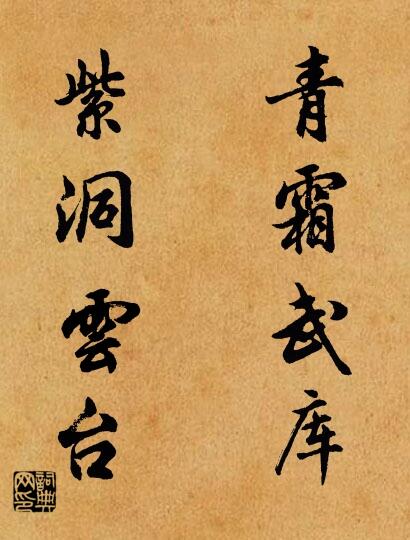 青霜武库
紫洞雲台
詞典网印